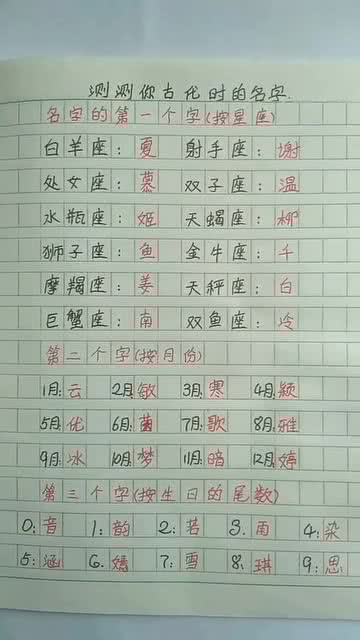 测测你古代时的名字.
名字的第一个字(按星座)
白羊座：夏 射手座：谢
处女座：慕 双子座：温
水瓶座：姬 天蝎座：柳
狮子座：鱼 金牛座：千
摩羯座：姜 天秤座：白
巨蟹座：南 双鱼座：冷
第二个字(按月份)
1月：云 2月：敏 3月：寒 4月：颖
5月：优 6月：茵 7月：歌 8月：雅
9月：冰 10月：梦 11月：暗 12月：婷
第三个字(按生日的尾数)
0：音 1：韵 2：若 3．雨 4：染
5：涵 6．嫣 7：雪 8：琪 9：思